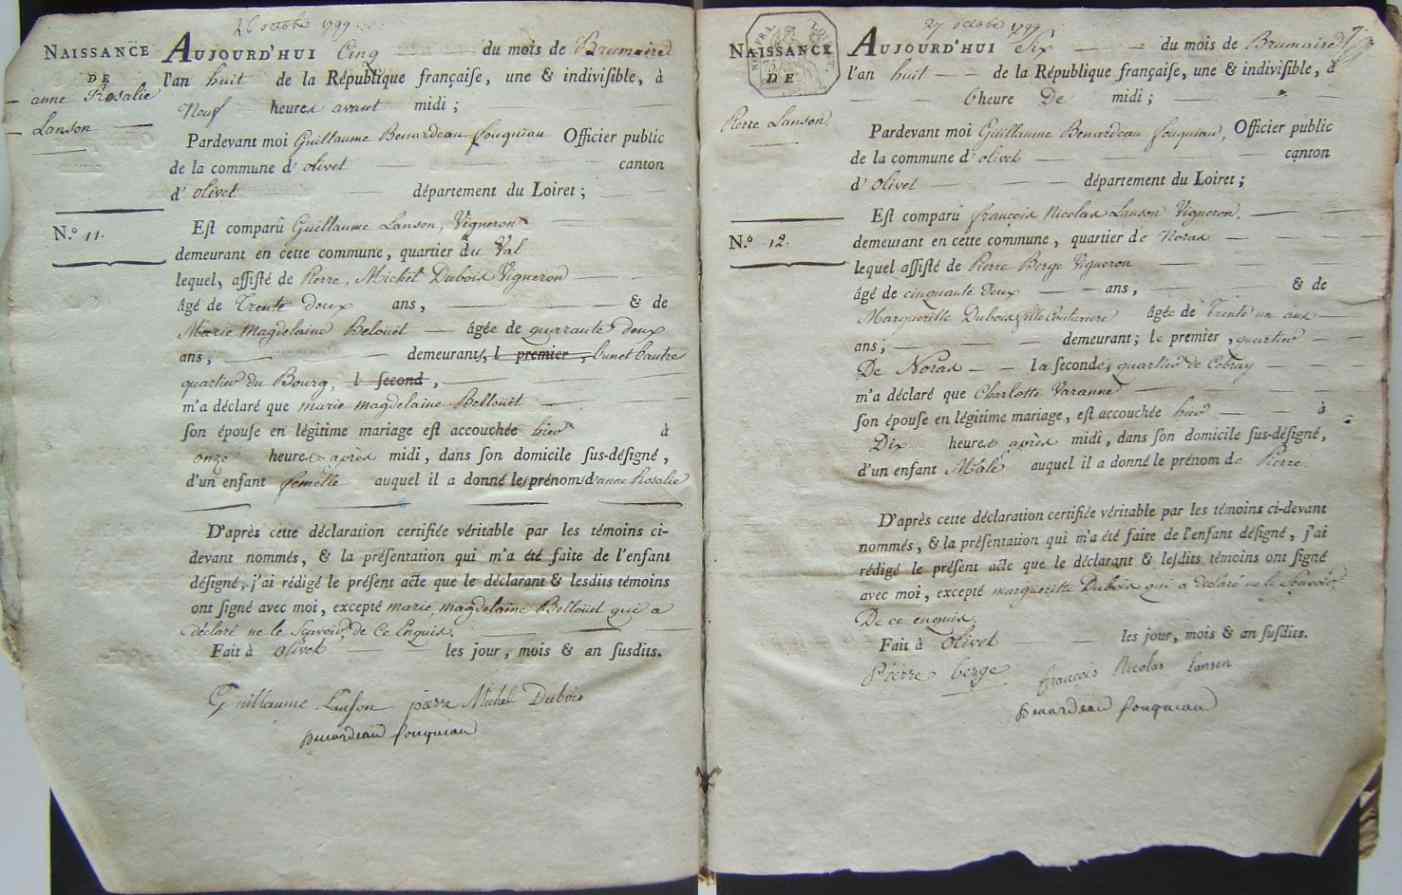 26 octobre 1799
NAISSANCE
DE
anne Rosalie
Lanson
N.º 11.
AUJOURD'HUI Cinq du mois de Brumaire
l'an huit de la République françaiſe, une & indiviſible, à
Neuf heures avant midi ;
Pardevant moi Guillaume Benardeau fouquiau Officier public
de la commune d'olivet canton
d'olivet département du Loiret ;
Eſt comparu Guillaume Lanson, Vigneron
demeurant en cette commune, quartier du Val
lequel, aſſiſté de Pierre, Michel Dubois Vigneron
âgé de Trente deux ans, & de
Marie Magdelaine Belouet âgée de quarante deux
ans, demeurants, l premier, l'un et l'autre
quartier du Bourg, l ſecond,
m'a déclaré que marie magdelaine Bellouët
ſon épouſe en légitime mariage eſt accouchée hier à
onze heures après midi, dans ſon domicile ſus-déſigné,
d'un enfant femelle auquel il a donné les prénoms d'anne Rosalie
D'après cette déclaration certifiée véritable par les témoins ci-
devant nommés, & la préſentation qui m'a été faite de l'enfant
déſigné, j'ai rédigé le préſent acte que le déclarant & leſdits témoins
ont ſigné avec moi, excepté marie, magdelaine Bellouet qui a
déclaré ne le Scavoir, de Ce Enquis.
Fait à olivet les jour, mois & an ſuſdits.
Guillaume Lanson pierre Michel Dubois
benardeau fouquiau
27 octobre 1799
NAISSANCE
DE
Pierre Lanson
N.º 12.
AUJOURD'HUI Six du mois de Brumaire
l'an huit de la République françaiſe, une & indiviſible, à
6 heure De midi ;
Pardevant moi Guillaume Benardeau fouquiau, Officier public
de la commune d'olivet canton
d'olivet département du Loiret ;
Eſt comparu françois Nicolas Lanson Vigneron.
demeurant en cette commune, quartier de Noras
lequel aſſiſté de Pierre Berge Vigneron
âgé de cinquante Deux ans, & de
Margueritte Dubois fille Couturiere âgée de Trente un ans
ans ; demeurant ; le premier, quartier
De Noras la ſeconde, quartier de Cobray
m'a déclaré que Charlotte Varanne
ſon épouſe en légitime mariage, eſt accouchée hier à
Dix heures après midi, dans ſon domicile ſus-déſigné,
d'un enfant Mâle auquel il a donné le prénom de Pierre
D'après cette déclaration certifiée véritable par les témoins ci-devant
nommés, & la préſentation qui m'a été faire de l'enfant déſigné, j'ai
rédigé le préſent acte que le déclarant & leſdits témoins ont ſigné
avec moi, excepté margueritte Dubois qui a déclaré ne le Scavoir
De ce enquis.
Fait à Olivet les jour, mois & an ſuſdits.
Pierre berge françois Nicolas Lanson
benardeau fouquiau